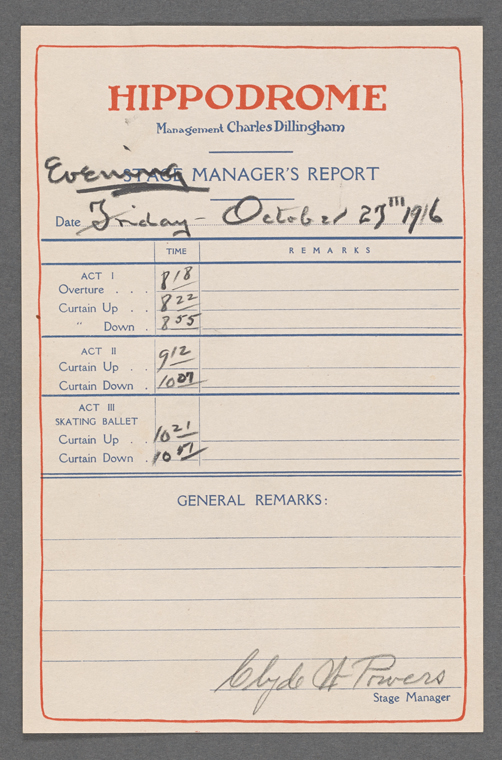 HIPPODROME
Management Charles Dillingham
Evening STAGE MANAGER'S REPORT
Date Friday - October 27TH 1916
TIME REMARKS
ACT I
Overture . . . 8 18
Curtain Up . . 8 22
" Down . 8 55
ACT II
Curtain Up . . 9 12
Curtain Down . 10 07
ACT III
SKATING BALLET
Curtain Up . . 10 21
Curtain Down . 10 51
GENERAL REMARKS:
Clyde W Powers
Stage Manager